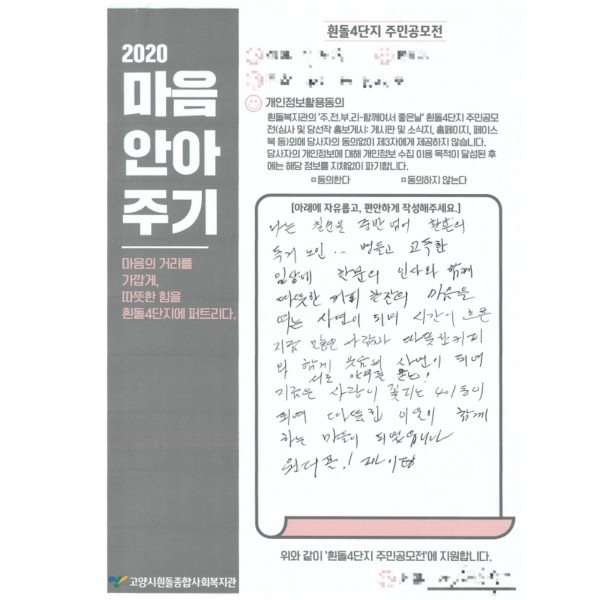 2020
마음
안아
주기
마음의 거리를
가깝게,
따뜻한 힘을
흰돌4단지에 퍼트리다.
고양시흰돌종합사회복지관
흰돌4단지 주민공모전
개인정보활용동의
흰돌복지관의 '주.전.부.리-함께여서 좋은날' 흰돌4단지 주민공모
전(심사 및 당선작 홍보게시: 게시판 및 소식지, 홈페이지, 페이스
북 등)외에 당사자의 동의없이 제3자에게 제공하지 않습니다.
당사자의 개인정보에 대해 개인정보 수집 이용 목적이 달성된 후
에는 해당 정보를 지체없이 파기합니다.
동의한다 동의하지 않는다
[아래에 자유롭고, 편안하게 작성해주세요.]
나는 칠순을 중반 넘어 황혼의
독거 노인.. 병들고 고독한
일상에 한분의 인사와 함께
따뜻한 커피 한잔의 마음을
되며 시간이 흐른
지금 따뜻한 커피
함께 웃음의 사연이 되며
서로 안부를 묻는!
지금은 사랑이 꽃피는
되며 따뜻한 이웃이 함께
하는 마을이 되었습니다
원더풀!
위와 같이 '흰돌4단지 주민공모전'에 지원합니다.